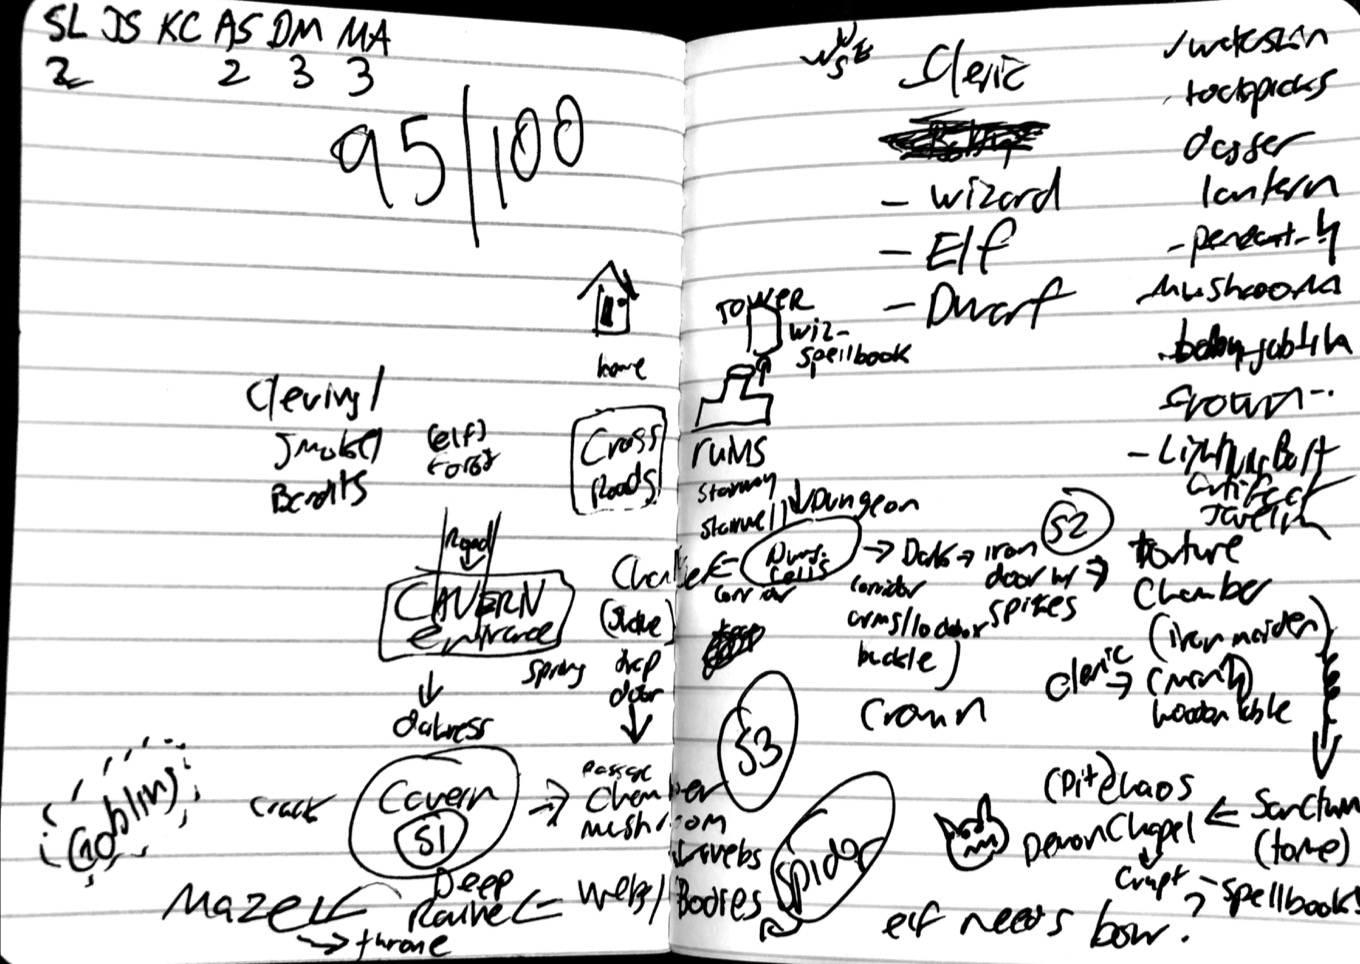 SL JS KC AS DM MA
2 2 3 3
95/100
home
Clering/
Smoke/
Bandits
(elf)
forest
Cross
Roads
Road
CAVERN
entrance
darkness
Goblins
crack
Cavern
S1
passage
Chamber
mushroom
webs
Webs/Bodies
Deep
Ravine
Maze
throne
spring
trap
door
N
W E
S
Cleric
- Wizard
- Elf
- Dwarf
TOWER
wiz-
spellbook
ruins
stairway
stairwell
Dungeon
Dung.
cells
corridor
Chamber
(snake)
Dark
corridor
arms/
buckle)
Crown
iron
door w/
spikes
S2
torture
Chamber
(iron maiden)
wooden table
cleric
Sanctum
(tome)
(pit) chaos
Demon Chapel
Crypt
- spellbook!
S3
Spider
elf needs bow.
waterskin
lockpicks
dagger
lantern
- pendant - 4
mushrooms
baby goblin
crown
- Lightning Bolt
artifact
Javelin